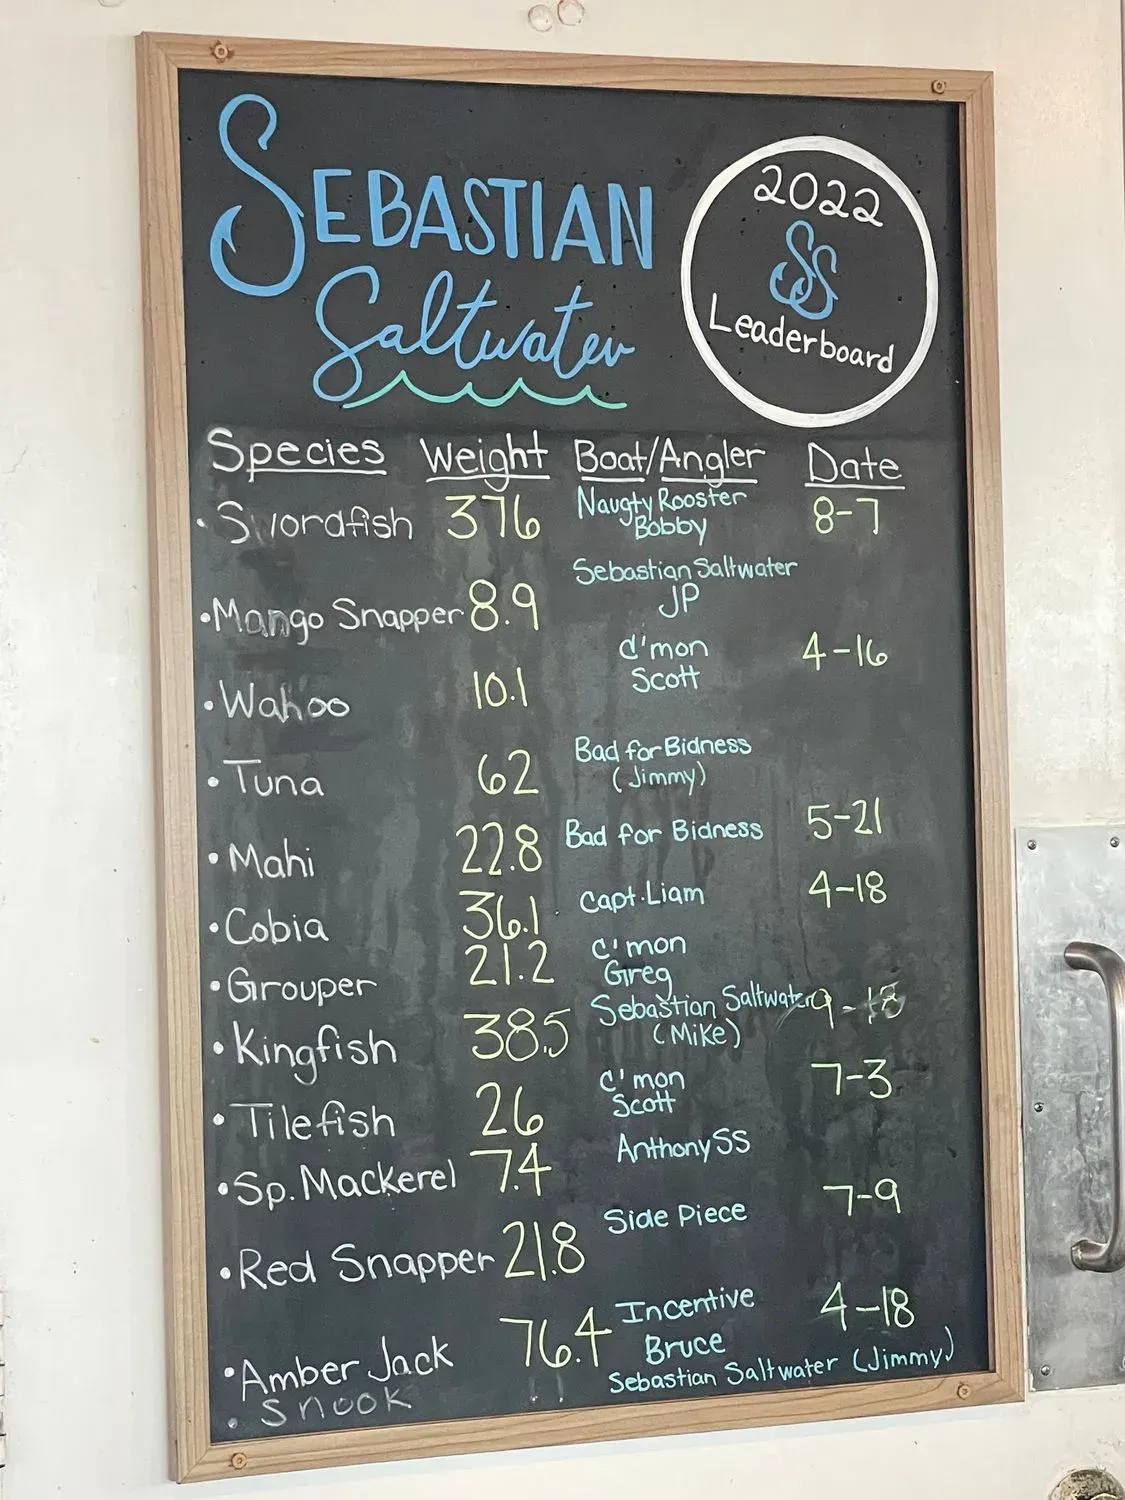 SEBASTIAN
Saltwater
2022
SS
Leaderboard
Species Weight Boat/Angler Date
• Swordfish 376 Naugty Rooster 8-7
Bobby
• Mango Snapper 8.9 Sebastian Saltwater
JP
• Wahoo 10.1 C'mon 4-16
Scott
• Tuna 62 Bad for Bidness
(Jimmy)
• Mahi 22.8 Bad for Bidness 5-21
• Cobia 36.1 Capt. Liam 4-18
• Grouper 21.2 C'mon
Greg
• Kingfish 38.5 Sebastian Saltwater 9-18
(Mike)
• Tilefish 26 C'mon 7-3
Scott
• Sp. Mackerel 7.4 Anthony SS
• Red Snapper 21.8 Side Piece 7-9
• Amber Jack 76.4 Incentive 4-18
Bruce
• Snook Sebastian Saltwater (Jimmy)